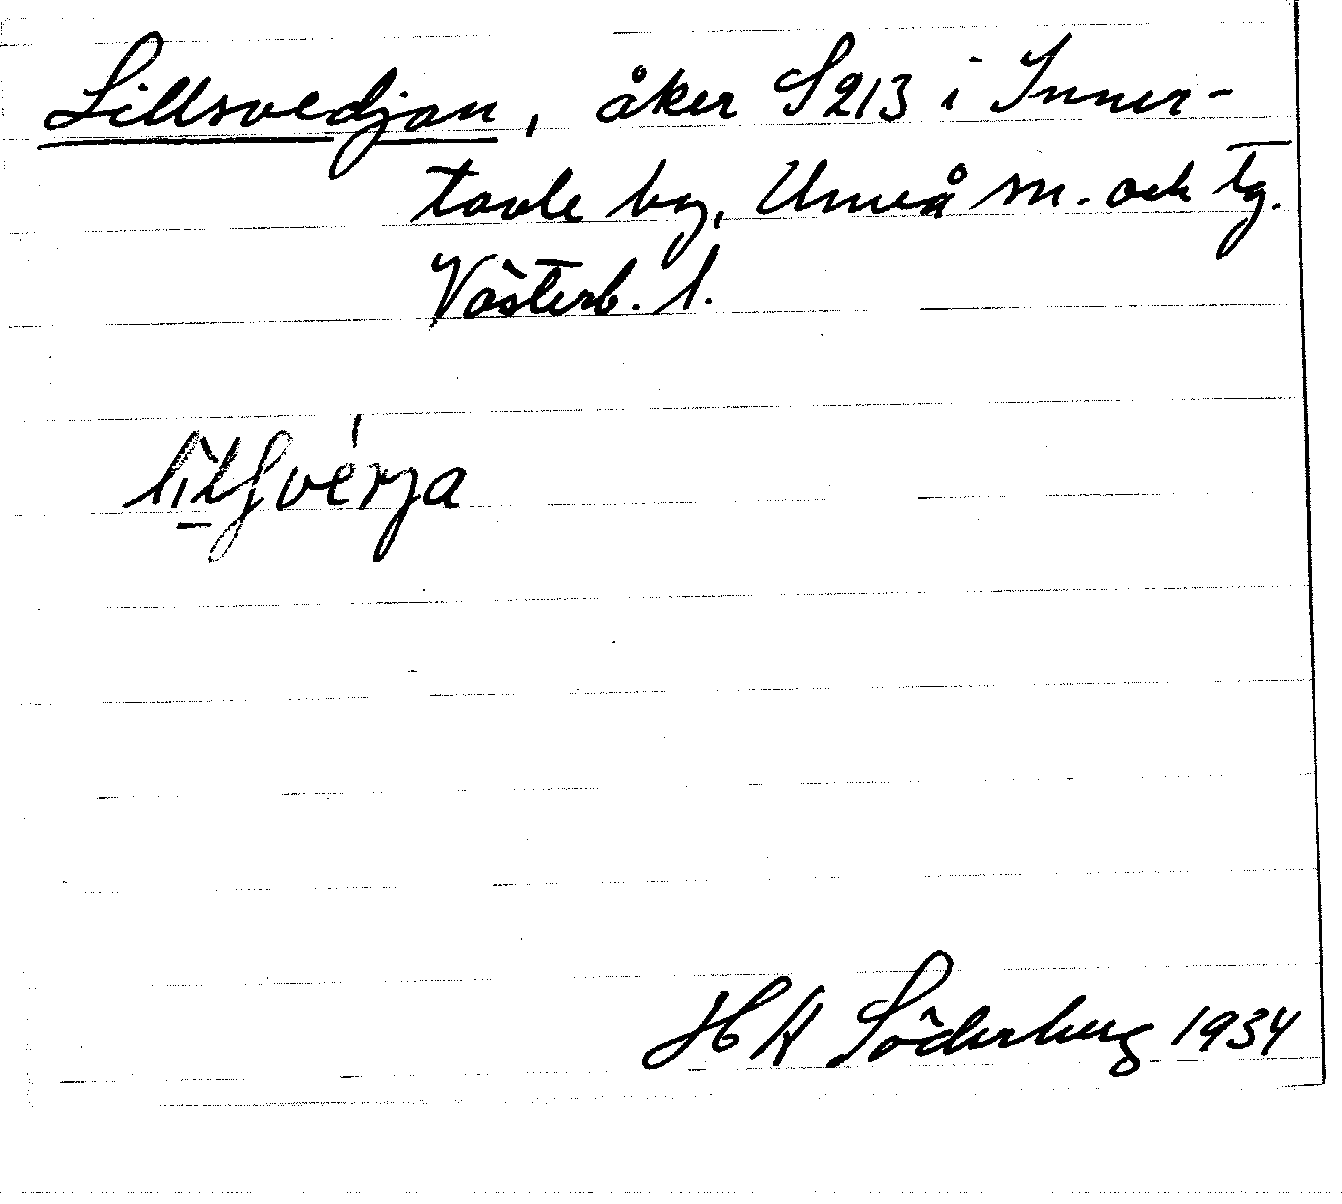 Lillsvedjan, åker S213 i Inner-
tavle by, Umeå sn. och tg.
Västerb. l.
H A Söderberg 1934